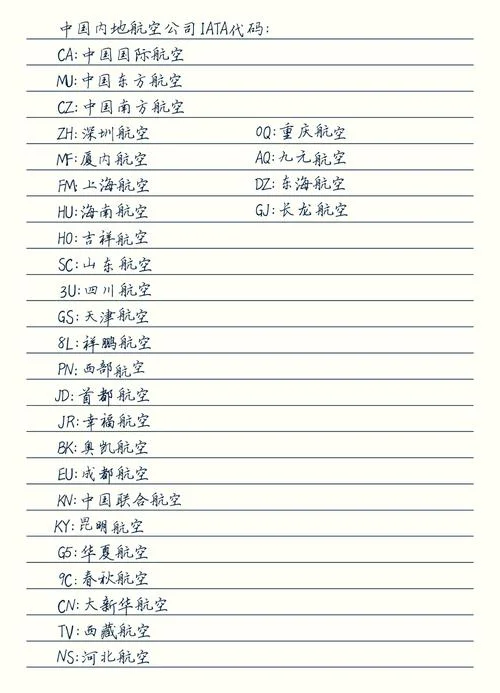 中国内地航空公司IATA代码:
CA:中国国际航空
MU:中国东方航空
CZ:中国南方航空
ZH:深圳航空
MF:厦内航空
FM:上海航空
HU:海南航空
HO:吉祥航空
SC:山东航空
3U:四川航空
GS:天津航空
8L:祥鹏航空
PN:西部航空
JD:首都航空
JR:幸福航空
BK:奥凯航空
EU:成都航空
KN:中国联合航空
KY:昆明航空
G5:华夏航空
9C:春秋航空
CN:大新华航空
TV:西藏航空
NS:河北航空
OQ:重庆航空
AQ:九元航空
DZ:东海航空
GJ:长龙航空